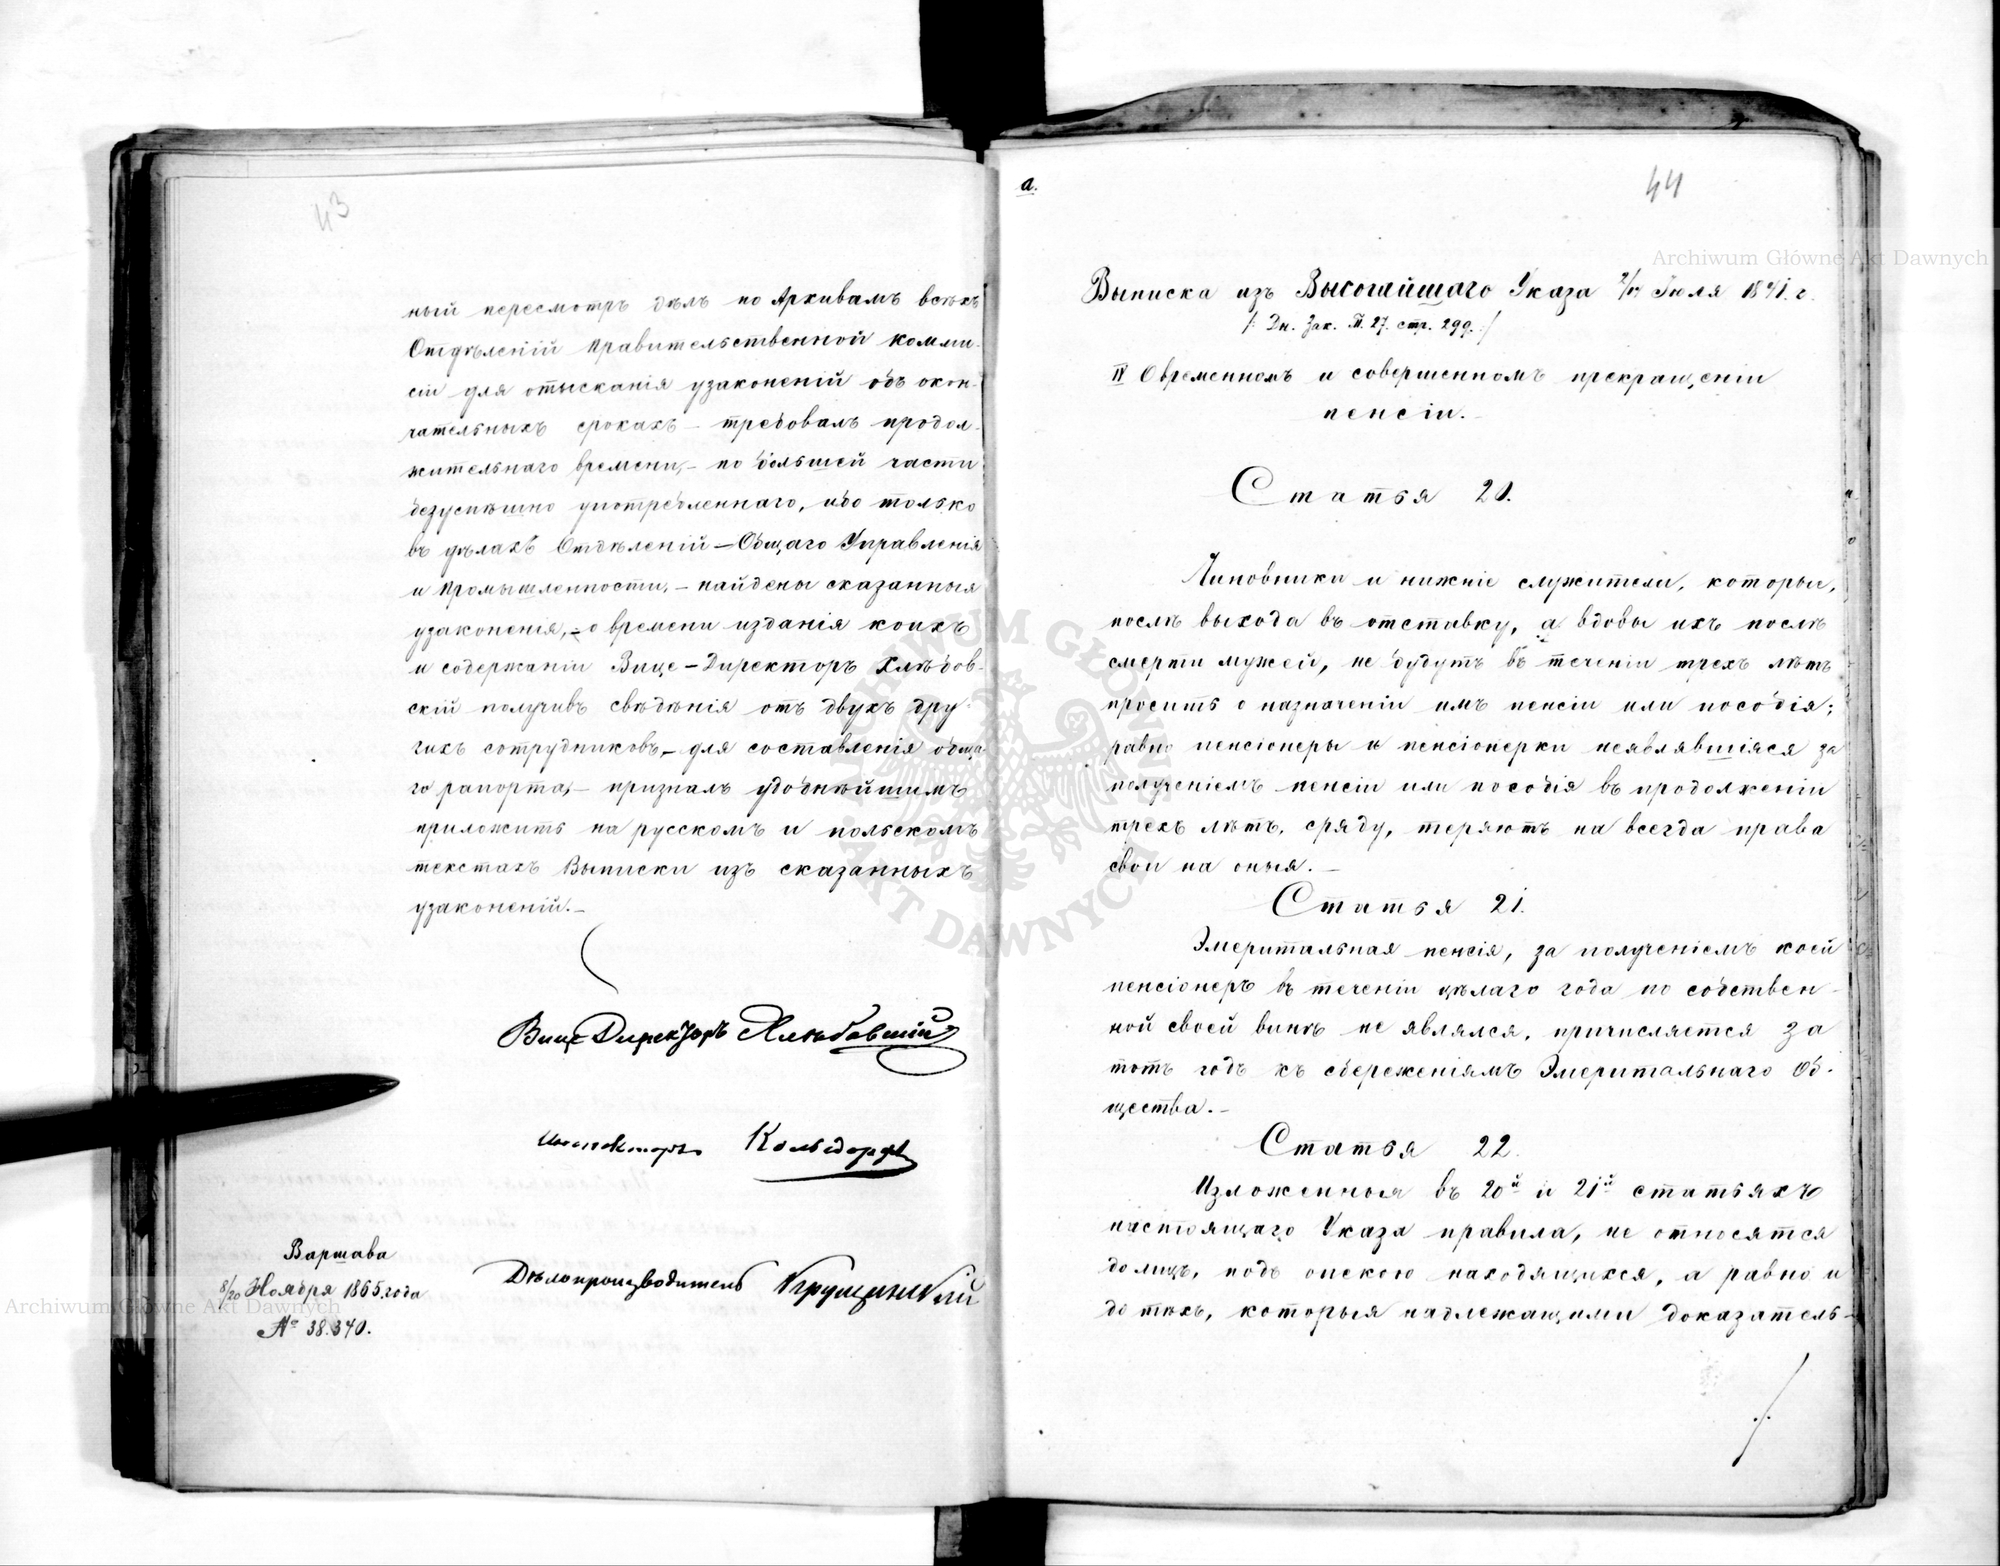 43
ный пересмотръ дѣлъ по Архивамъ всѣхъ
Отдѣленій Правительственной комми-
сіи для отысканія узаконеній объ окон-
чательныхъ срокахъ – требовалъ продол-
жительнаго времени, – по большей части
безуспѣшно употребленнаго, ибо только
въ дѣлахъ Отдѣленій – Общаго Управленія
и Промышленности, – найдены сказанныя
узаконенія, – о времени изданія коихъ
и содержаніи Вице-Директоръ Хлѣбов-
скій получивъ свѣдѣнія отъ двухъ дру-
гихъ сотрудниковъ, – для составленія обща-
го рапорта, – призналъ удобнѣйшимъ
приложить на русскомъ и польскомъ
текстахъ Выписки изъ сказанныхъ
узаконеній. –
Вице Директоръ Хлѣбовскій
Инспекторъ
Дѣлопроизводитель
Варшава
8/20 Ноября 1865 года
№ 38.340.
а.
44
Выписка изъ Высочайшаго Указа 2/14 Іюля 1841 г.
/: Дн. Зак. Т. 27. стр. 299. :/
IV О временномъ и совершенномъ прекращеніи
пенсіи. –
Статья 20.
Чиновники и нижніе служители, которые,
послѣ выхода въ отставку, а вдовы ихъ послѣ
смерти мужей, не будутъ въ теченіи трехъ лѣтъ
просить о назначеніи имъ пенсіи или пособія;
равно пенсіонеры и пенсіонерки неявлявшіяся за
полученіемъ пенсіи или пособія въ продолженіи
трехъ лѣтъ, сряду, теряютъ на всегда права
свои на оныя. –
Статья 21.
Эмеритальная пенсія, за полученіемъ коей
пенсіонеръ въ теченіи цѣлаго года по собствен-
ной своей винѣ не являлся, причисляется за
тотъ годъ къ сбереженіямъ Эмеритальнаго Об-
щества. –
Статья 22.
Изложенныя въ 20й и 21й статьяхъ
настоящаго Указа правила, не относятся
до лицъ, подъ опекою находящихся, а равно и
до тѣхъ, которыя надлежащими доказатель-
./.
Archiwum Główne Akt Dawnych
Archiwum Główne Akt Dawnych
ARCHIWUM GŁÓWNE AKT DAWNYCH